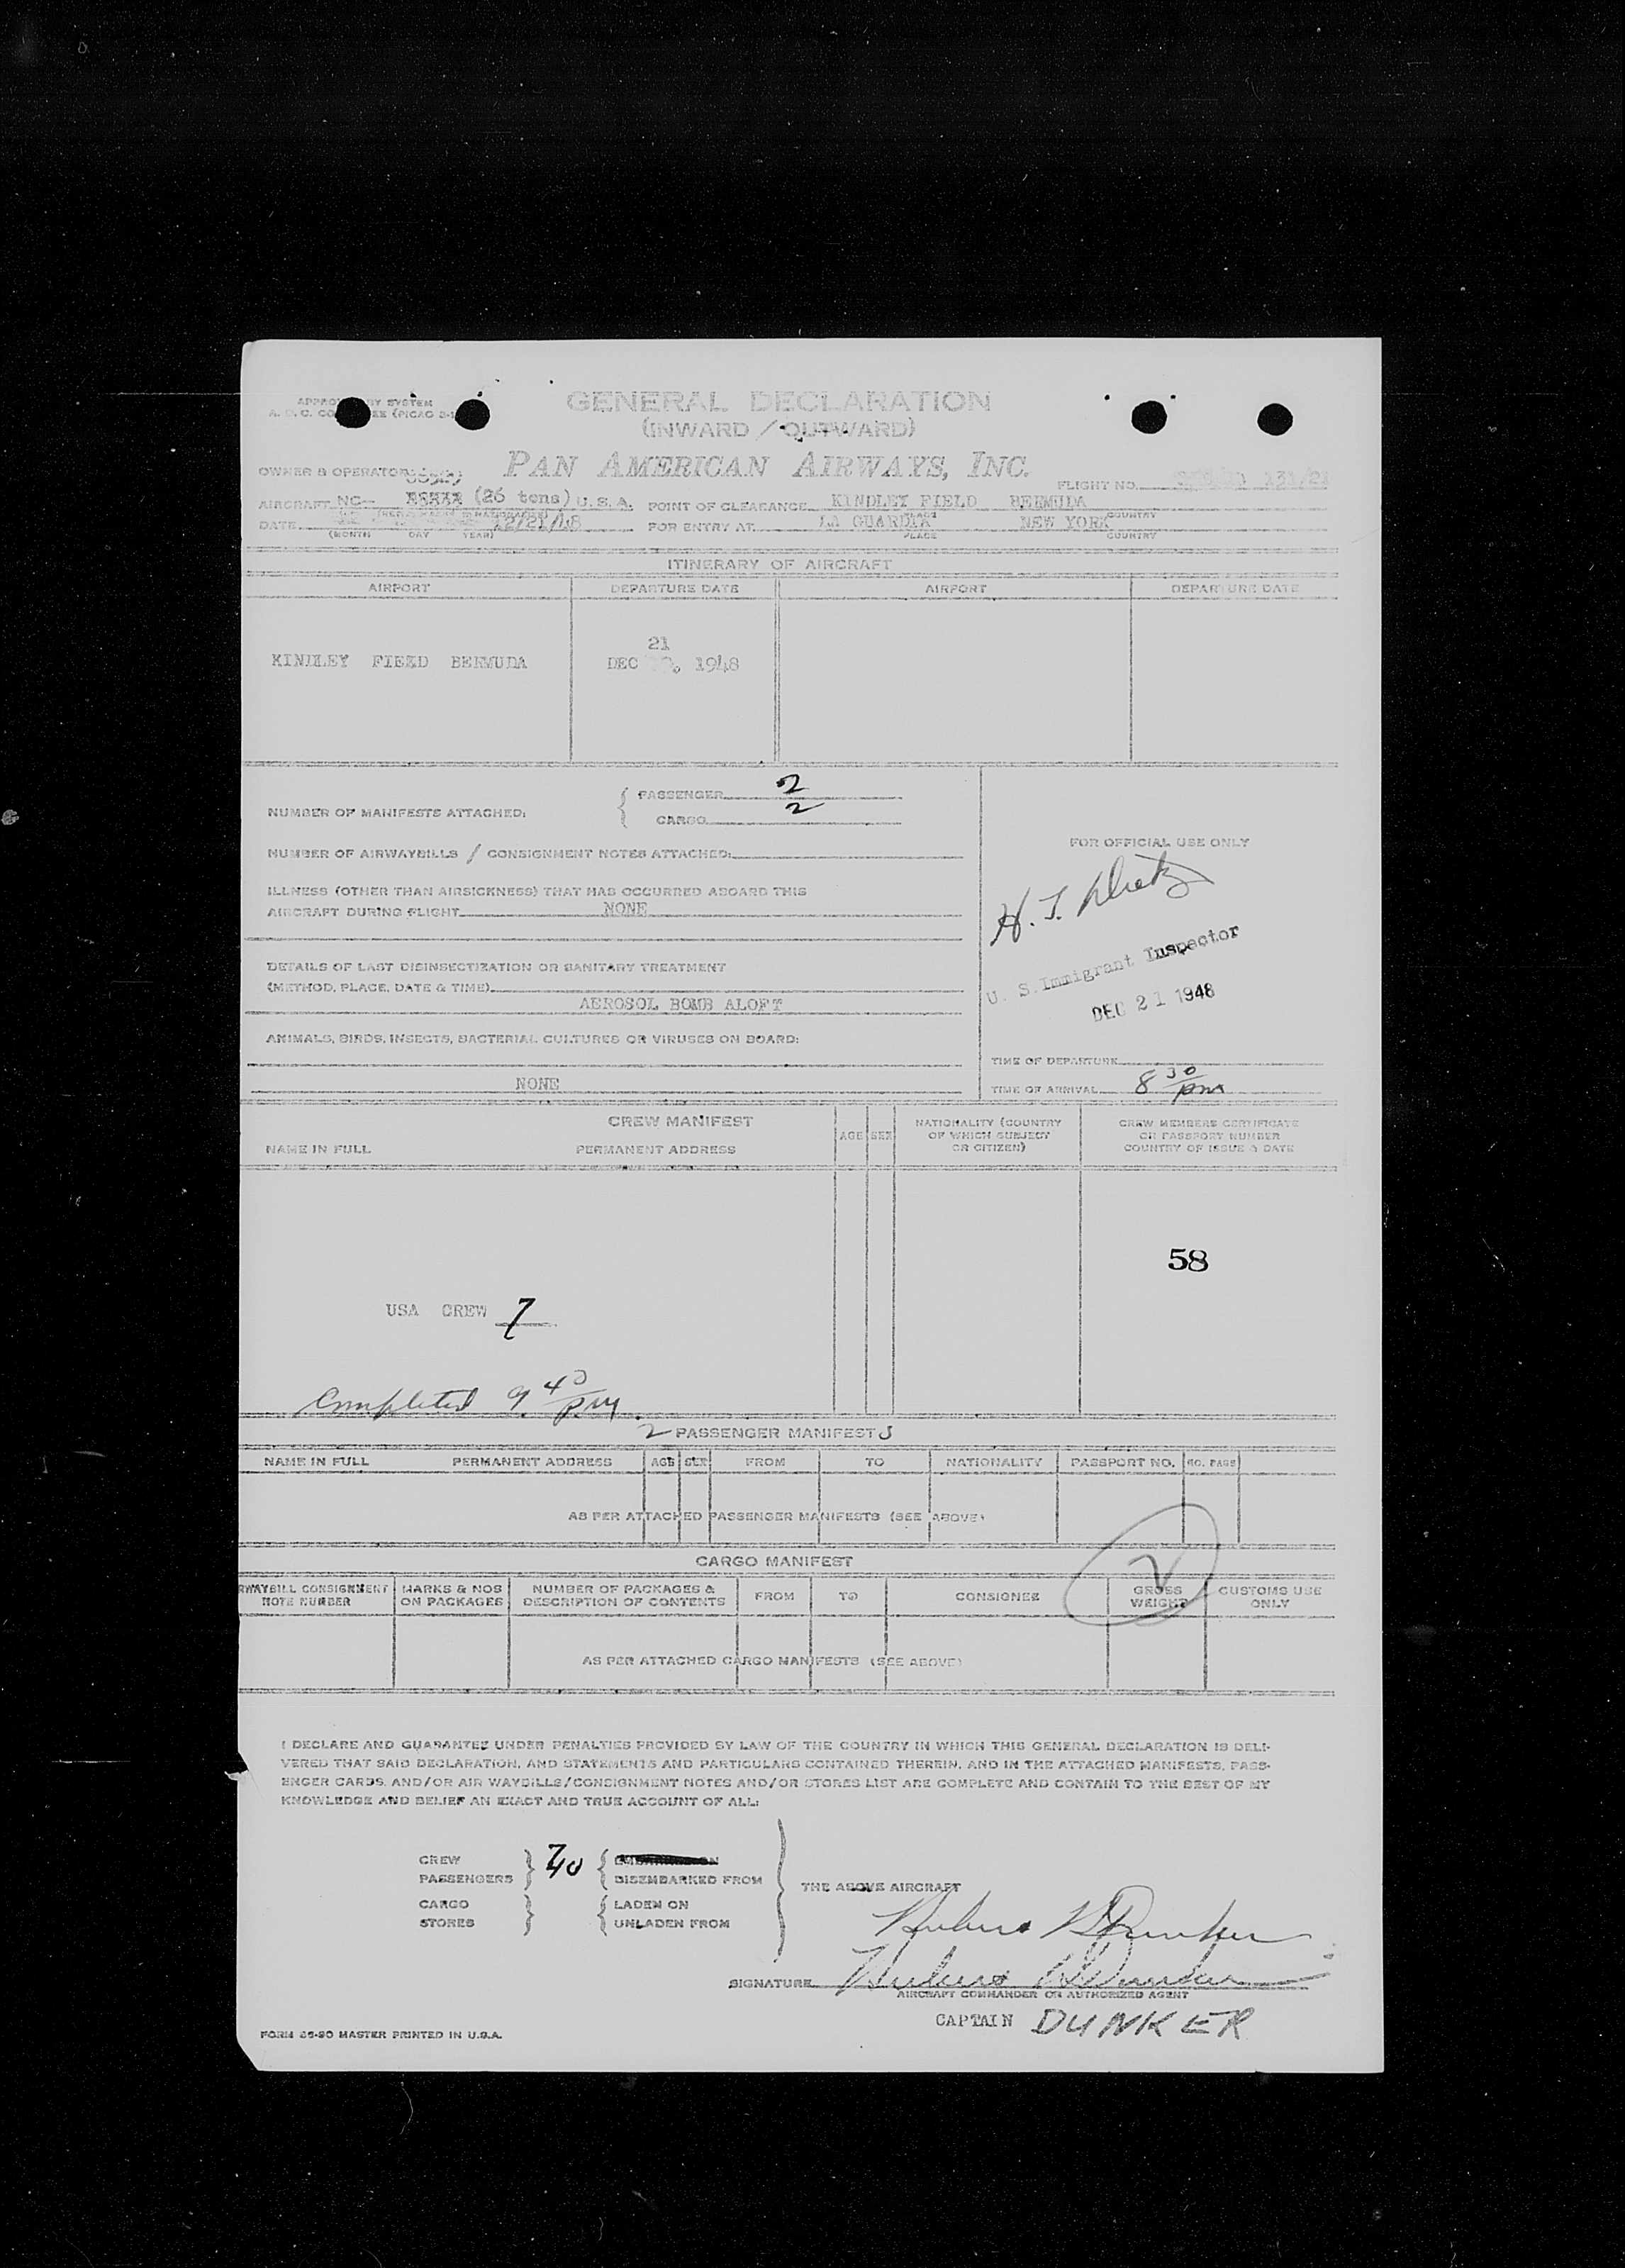 GENERAL DECLARATION
(INWARD / OUTWARD)
OWNER & OPERATOR PAN AMERICAN AIRWAYS, INC.
FLIGHT NO. 131/21
AIRCRAFT NC- (26 tons) U.S.A. POINT OF CLEARANCE KINDLEY FIELD BERMUDA
DATE 12/21/48 FOR ENTRY AT LA GUARDIA NEW YORK
(MONTH DAY YEAR) PLACE COUNTRY
ITINERARY OF AIRCRAFT
AIRPORT DEPARTURE DATE AIRPORT DEPARTURE DATE
21
KINDLEY FIELD BERMUDA DEC , 1948
NUMBER OF MANIFESTS ATTACHED: { PASSENGER 2
CARGO 2
NUMBER OF AIRWAYBILLS / CONSIGNMENT NOTES ATTACHED:
ILLNESS (OTHER THAN AIRSICKNESS) THAT HAS OCCURRED ABOARD THIS
AIRCRAFT DURING FLIGHT NONE
DETAILS OF LAST DISINSECTIZATION OR SANITARY TREATMENT
(METHOD, PLACE, DATE & TIME)
AEROSOL BOMB ALOFT
ANIMALS, BIRDS, INSECTS, BACTERIAL CULTURES OR VIRUSES ON BOARD:
NONE
FOR OFFICIAL USE ONLY
H. J.
U. S. Immigrant Inspector
DEC 21 1948
TIME OF DEPARTURE
TIME OF ARRIVAL 8 30 pm
CREW MANIFEST
NAME IN FULL PERMANENT ADDRESS AGE SEX NATIONALITY (COUNTRY OF WHICH SUBJECT OR CITIZEN) CREW MEMBERS CERTIFICATE OR PASSPORT NUMBER COUNTRY OF ISSUE & DATE
58
USA CREW 7
Completed 9 40 p.m.
2 PASSENGER MANIFEST S
NAME IN FULL PERMANENT ADDRESS AGE SEX FROM TO NATIONALITY PASSPORT NO. NO. BAGS
AS PER ATTACHED PASSENGER MANIFESTS (SEE ABOVE)
CARGO MANIFEST
2
RWAYBILL CONSIGNMENT NOTE NUMBER MARKS & NOS ON PACKAGES NUMBER OF PACKAGES & DESCRIPTION OF CONTENTS FROM TO CONSIGNEE GROSS WEIGHT CUSTOMS USE ONLY
AS PER ATTACHED CARGO MANIFESTS (SEE ABOVE)
I DECLARE AND GUARANTEE UNDER PENALTIES PROVIDED BY LAW OF THE COUNTRY IN WHICH THIS GENERAL DECLARATION IS DELI-
VERED THAT SAID DECLARATION, AND STATEMENTS AND PARTICULARS CONTAINED THEREIN, AND IN THE ATTACHED MANIFESTS, PASS-
ENGER CARDS, AND/OR AIR WAYBILLS/CONSIGNMENT NOTES AND/OR STORES LIST ARE COMPLETE AND CONTAIN TO THE BEST OF MY
KNOWLEDGE AND BELIEF AN EXACT AND TRUE ACCOUNT OF ALL:
CREW 7
PASSENGERS 40 DISEMBARKED FROM
THE ABOVE AIRCRAFT
CARGO LADEN ON
STORES UNLADEN FROM
SIGNATURE
AIRCRAFT COMMANDER OR AUTHORIZED AGENT
CAPTAIN DUNKER
FORM 36-90 MASTER PRINTED IN U.S.A.